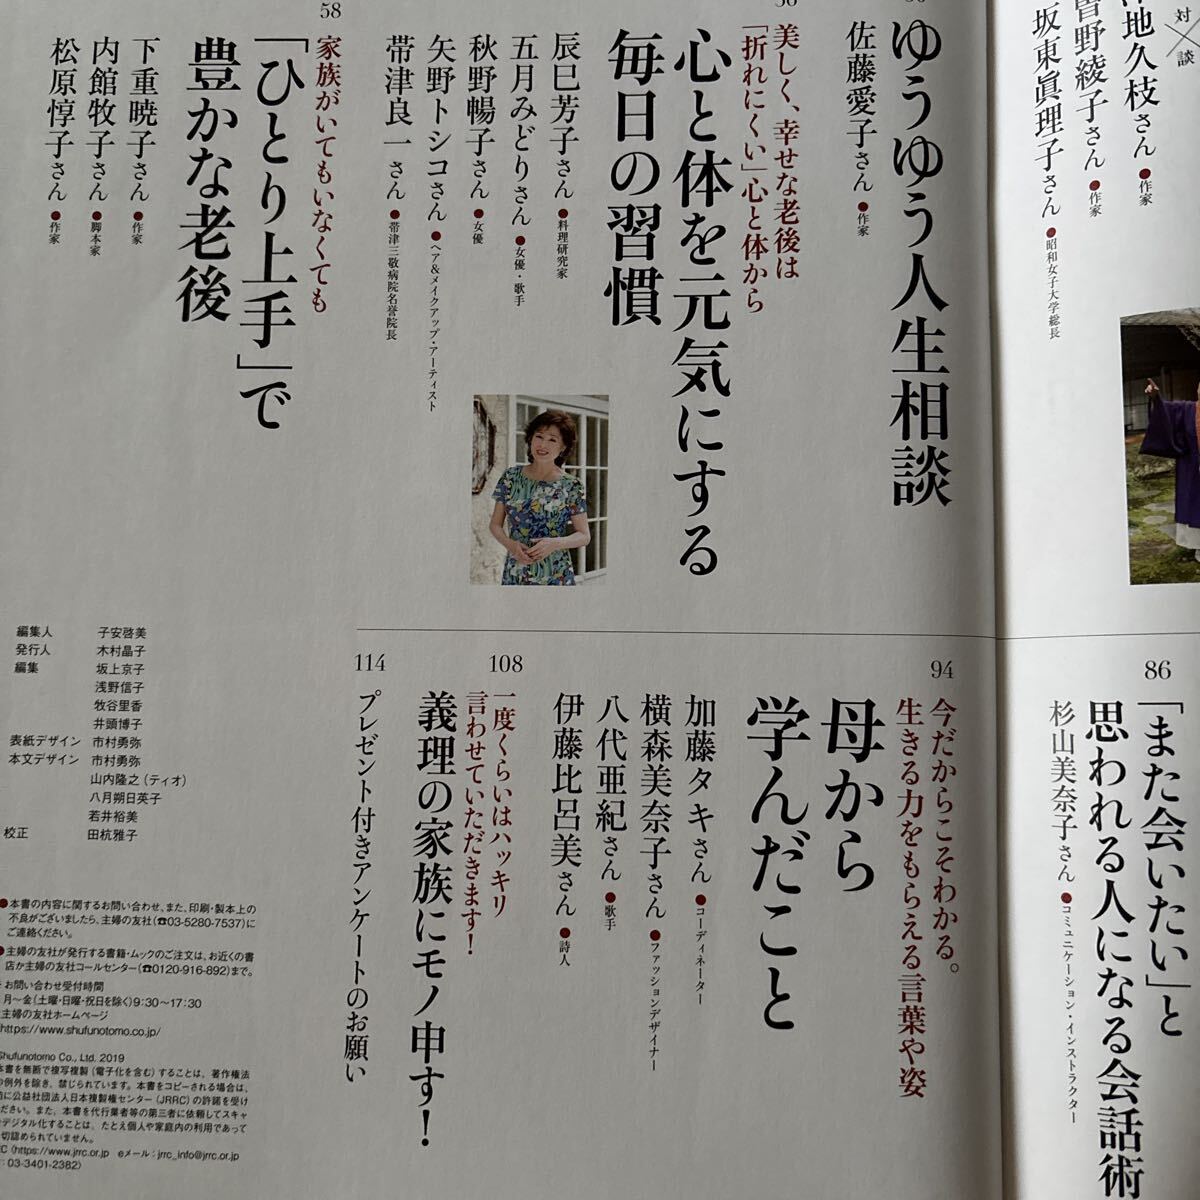 対
×
談
地久枝さん ●作家
曽野綾子さん ●作家
坂東眞理子さん ●昭和女子大学総長
ゆうゆう人生相談
佐藤愛子さん ●作家
美しく、幸せな老後は
「折れにくい」心と体から
心と体を元気にする
毎日の習慣
辰巳芳子さん ●料理研究家
五月みどりさん ●女優・歌手
秋野暢子さん ●女優
矢野トシコさん ●ヘア&メイクアップ・アーティスト
帯津良一さん ●帯津三敬病院名誉院長
58
家族がいてもいなくても
「ひとり上手」で
豊かな老後
下重暁子さん ●作家
内館牧子さん ●脚本家
松原惇子さん ●作家
86
「また会いたい」と
思われる人になる会話術
杉山美奈子さん ●コミュニケーション・インストラクター
94
今だからこそわかる。
生きる力をもらえる言葉や姿
母から
学んだこと
加藤タキさん ●コーディネーター
横森美奈子さん ●ファッションデザイナー
八代亜紀さん ●歌手
伊藤比呂美さん ●詩人
108
一度くらいはハッキリ
言わせていただきます!
義理の家族にモノ申す!
114
プレゼント付きアンケートのお願い
編集人 子安啓美
発行人 木村晶子
編集 坂上京子
浅野信子
牧谷里香
井頭博子
表紙デザイン 市村勇弥
本文デザイン 市村勇弥
山内隆之(ティオ)
八月朔日英子
若井裕美
校正 田杭雅子
●本書の内容に関するお問い合わせ、また、印刷・製本上の
不良がございましたら、主婦の友社(☎03-5280-7537)に
ご連絡ください。
●主婦の友社が発行する書籍・ムックのご注文は、お近くの書
店か主婦の友社コールセンター(☎0120-916-892)まで。
お問い合わせ受付時間
月~金(土曜・日曜・祝日を除く)9:30~17:30
主婦の友社ホームページ
https://www.shufunotomo.co.jp/
Shufunotomo Co., Ltd. 2019
本書を無断で複写複製(電子化を含む)することは、著作権法
の例外を除き、禁じられています。本書をコピーされる場合は、
前に公益社団法人日本複製権センター(JRRC)の許諾を受け
ださい。また、本書を代行業者等の第三者に依頼してスキャ
デジタル化することは、たとえ個人や家庭内の利用であって
切認められていません。
C(https://www.jrrc.or.jp eメール:jrrc_info@jrrc.or.jp
:03-3401-2382)